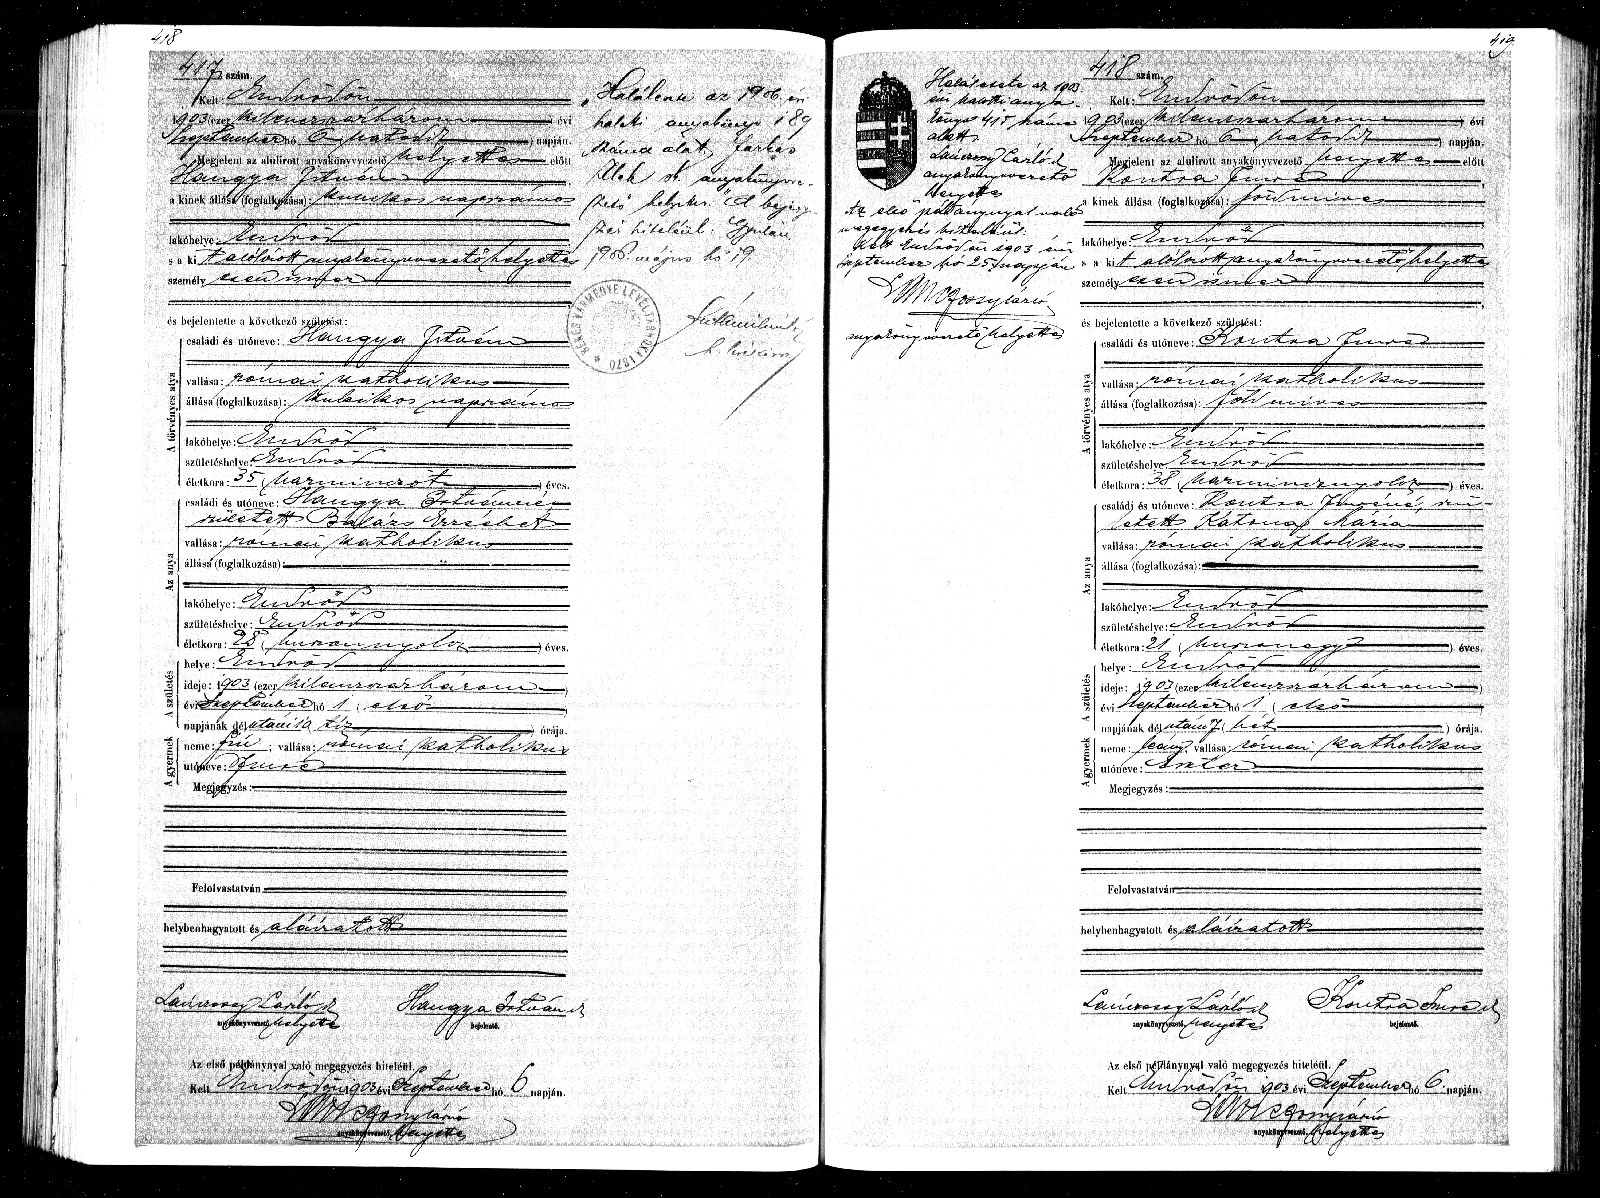 418
417 szám.
Kelt: Endrődön
1903 (ezer kilenszázhárom) évi
Szeptember hó 6 (hatodik) napján.
Megjelent az alulirott anyakönyvvezető helyettes előtt
Hangya István
a kinek állása (foglalkozása): kulcikos napszámos
lakóhelye: Endrőd
s a kit alólirott anyakönyvvezető helyettes
személy esen ismer
és bejelentette a következő születést:
A törvényes atya
családi és utóneve: Hangya István
vallása: római katholikus
állása (foglalkozása): kulcikos napszámos
lakóhelye: Endrőd
születéshelye: Endrőd
életkora: 35 (harminczöt) éves.
Az anya
családi és utóneve: Hangya Istvánné
született Balázs Erzsébet
vallása: római katholikus
állása (foglalkozása):
lakóhelye: Endrőd
születéshelye: Endrőd
életkora: 28 (huszonnyolcz) éves.
A születés
helye: Endrőd
ideje: 1903 (ezer kilenszázhárom)
évi Szeptember hó 1 (első)
napjának délutáni 10 tiz órája.
A gyermek
neme: fiú; vallása: római katholikus
utóneve: Imre
Megjegyzés:
Felolvastatván
helybenhagyatott és aláiratott
László
anyakönyvvezető helyettes
Hangya István
bejelentő.
Az első példánynyal való megegyezés hiteléül.
Kelt Endrődön 1903 évi Szeptember hó 6 napján.
anyakönyvvezető, helyettes
"Halálesete az 1906. évi
halotti anyakönyv 189
szám alatt, Farkas
sk. anyakönyvve-
zető helyettes." A bejegy-
zés hiteléül: Gyulán
1906. május hó 19.
BÉKÉS VÁRMEGYE LEVÉLTÁRNOKA 1870
419
Halálesete az 1903
évi halotti anya-
könyv 415 száma
alatt
László
anyakönyvvezető
helyettes
Az első példánynyal való
megegyezés hiteléül.
Kelt Endrődön 1903 évi
Szeptember hó 25 napján
anyakönyvvezető helyettes
418 szám.
Kelt: Endrődön
1903 (ezer kilenszázhárom) évi
Szeptember hó 6 (hatodik) napján.
Megjelent az alulirott anyakönyvvezető helyettes előtt
Kontra Imre
a kinek állása (foglalkozása): földmives
lakóhelye: Endrőd
s a kit alólirott anyakönyvvezető helyettes
személy esen ismer
és bejelentette a következő születést:
A törvényes atya
családi és utóneve: Kontra Imre
vallása: római katholikus
állása (foglalkozása): földmives
lakóhelye: Endrőd
születéshelye: Endrőd
életkora: 38 (harmincznyolcz) éves.
Az anya
családi és utóneve: Kontra Imréné, szü-
letett Katona Mária
vallása: római katholikus
állása (foglalkozása):
lakóhelye: Endrőd
születéshelye: Endrőd
életkora: 21 (huszonegy) éves.
A születés
helye: Endrőd
ideje: 1903 (ezer kilenszázhárom)
évi Szeptember hó 1 (első)
napjának délután 7 (hét) órája.
A gyermek
neme: leány; vallása: római katholikus
utóneve: Eszter
Megjegyzés:
Felolvastatván
helybenhagyatott és aláiratott
László
anyakönyvvezető, helyettes
Kontra Imre
bejelentő.
Az első példánynyal való megegyezés hiteléül.
Kelt Endrődön 1903 évi Szeptember hó 6. napján.
anyakönyvvezető, helyettes